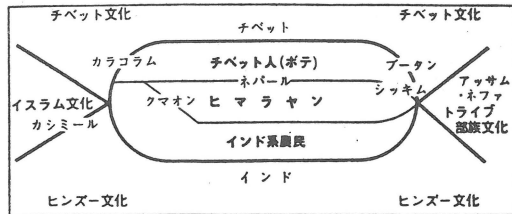 チベット文化
チベット
チベット文化
カラコラム
チベット人(ボテ)
ブータン
ネパール
シッキム
イスラム文化
クマオン
ヒマラヤン
アッサム
・ネファ
カシミール
トライブ
部族文化
インド系農民
インド
ヒンズー文化
ヒンズー文化